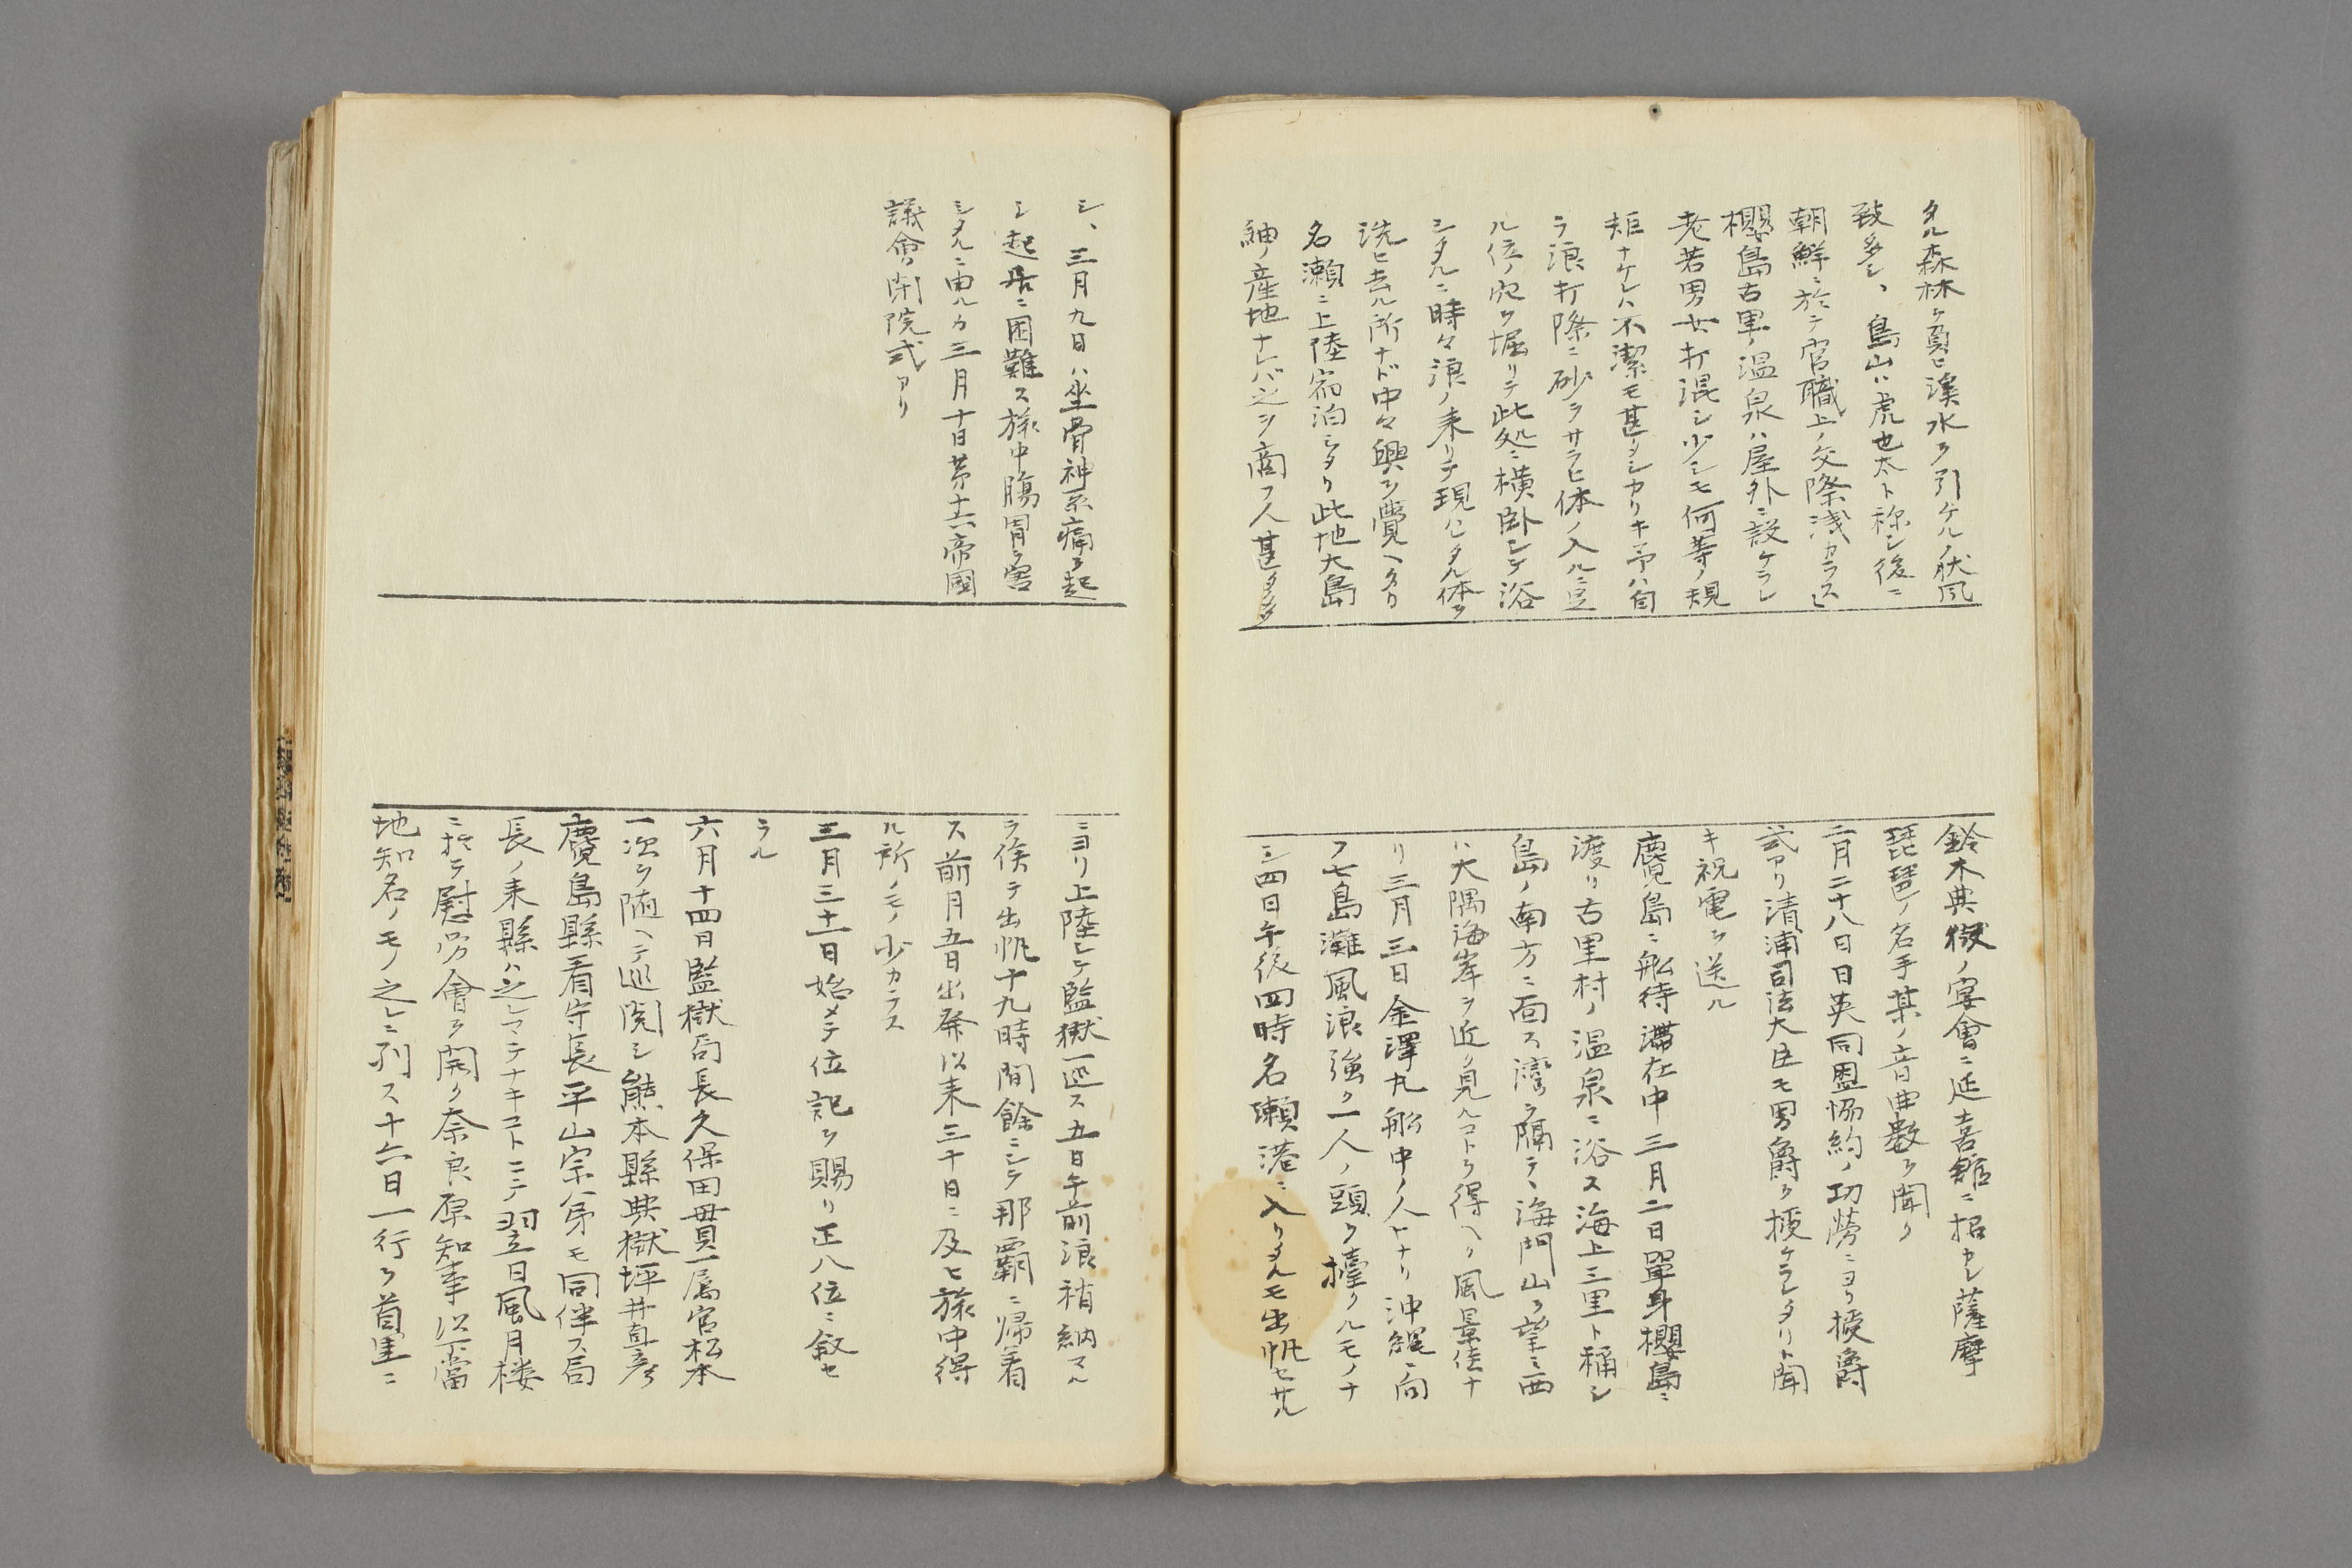 タル森林ヲ負ヒ溪水ヲ引ケルノ状風
致多シ、島山ハ虎也太ト称シ後ニ
朝鮮ニ於テ官職上ノ交際浅カラス
櫻島古里ノ温泉ハ屋外ニ設ケラレ
老若男女打混シ少シモ何等ノ規
矩ナケレハ不潔モ甚タシカリキ予ハ自
ラ浪打際ニ砂ヲサラヒ体ノ入ルニ足
ル位ノ穴ヲ堀リテ此処ニ横臥シテ浴
シタルニ時々浪ノ来リテ現ハシタル体ヲ
洗ヒ去ル所ナド中々興ヲ覺ヘタリ
名瀬ニ上陸宿泊シタリ此地大島
紬ノ産地ナレバ之ヲ商フ人甚タ多
鈴木典獄ノ宴會ニ延喜館ニ招カレ薩摩
琵琶ノ名手某ノ音曲数々聞ク
二月二十八日日英同盟協約ノ功勞ニヨリ授爵
式アリ清浦司法大臣モ男爵ヲ授ケラレタリト聞
キ祝電ヲ送ル
鹿児島ニ船待滞在中三月二日單身櫻島ニ
渡リ古里村ノ温泉ニ浴ス海上三里ト稱シ
島ノ南方ニ面ス湾ヲ隔テ、海門山ヲ望ミ西
ハ大隅海岸ヲ近ク見ルコトヲ得ヘク風景佳ナ
リ三月三日金澤丸船中ノ人トナリ沖縄ニ向
フ七島灘風浪強ク一人ノ頭ヲ擡クルモノナ
シ四日午後四時名瀬港ニ入リタルモ出帆セサル
シ、三月九日ハ坐骨神系痛ヲ起
シ起居ニ困難ス旅中腸胃ヲ害
シタルニ由ルカ三月十日第十六帝國
議會ノ閉院式アリ
ニヨリ上陸シテ監獄一巡ス五日午前浪稍納マル
ヲ俟テ出帆十九時間餘ニシテ那覇ニ帰着
ス前月五日出発以来三十日ニ及ヒ旅中得
ル所ノモノ少カラス
三月三十一日始メテ位記ヲ賜リ正八位ニ叙セ
ラル
六月十四日監獄局長久保田貫一属官松本
一次ヲ随ヘテ巡閲シ熊本縣典獄坪井直彦
鹿児島縣看守長平山宗介等モ同伴ス局
長ノ来縣ハ之レマテナキコトニテ翌日風月楼
ニ於テ慰労會ヲ開ク奈良原知事以下當
地知名ノモノ之レニ列ス十六日一行ヲ首里ニ